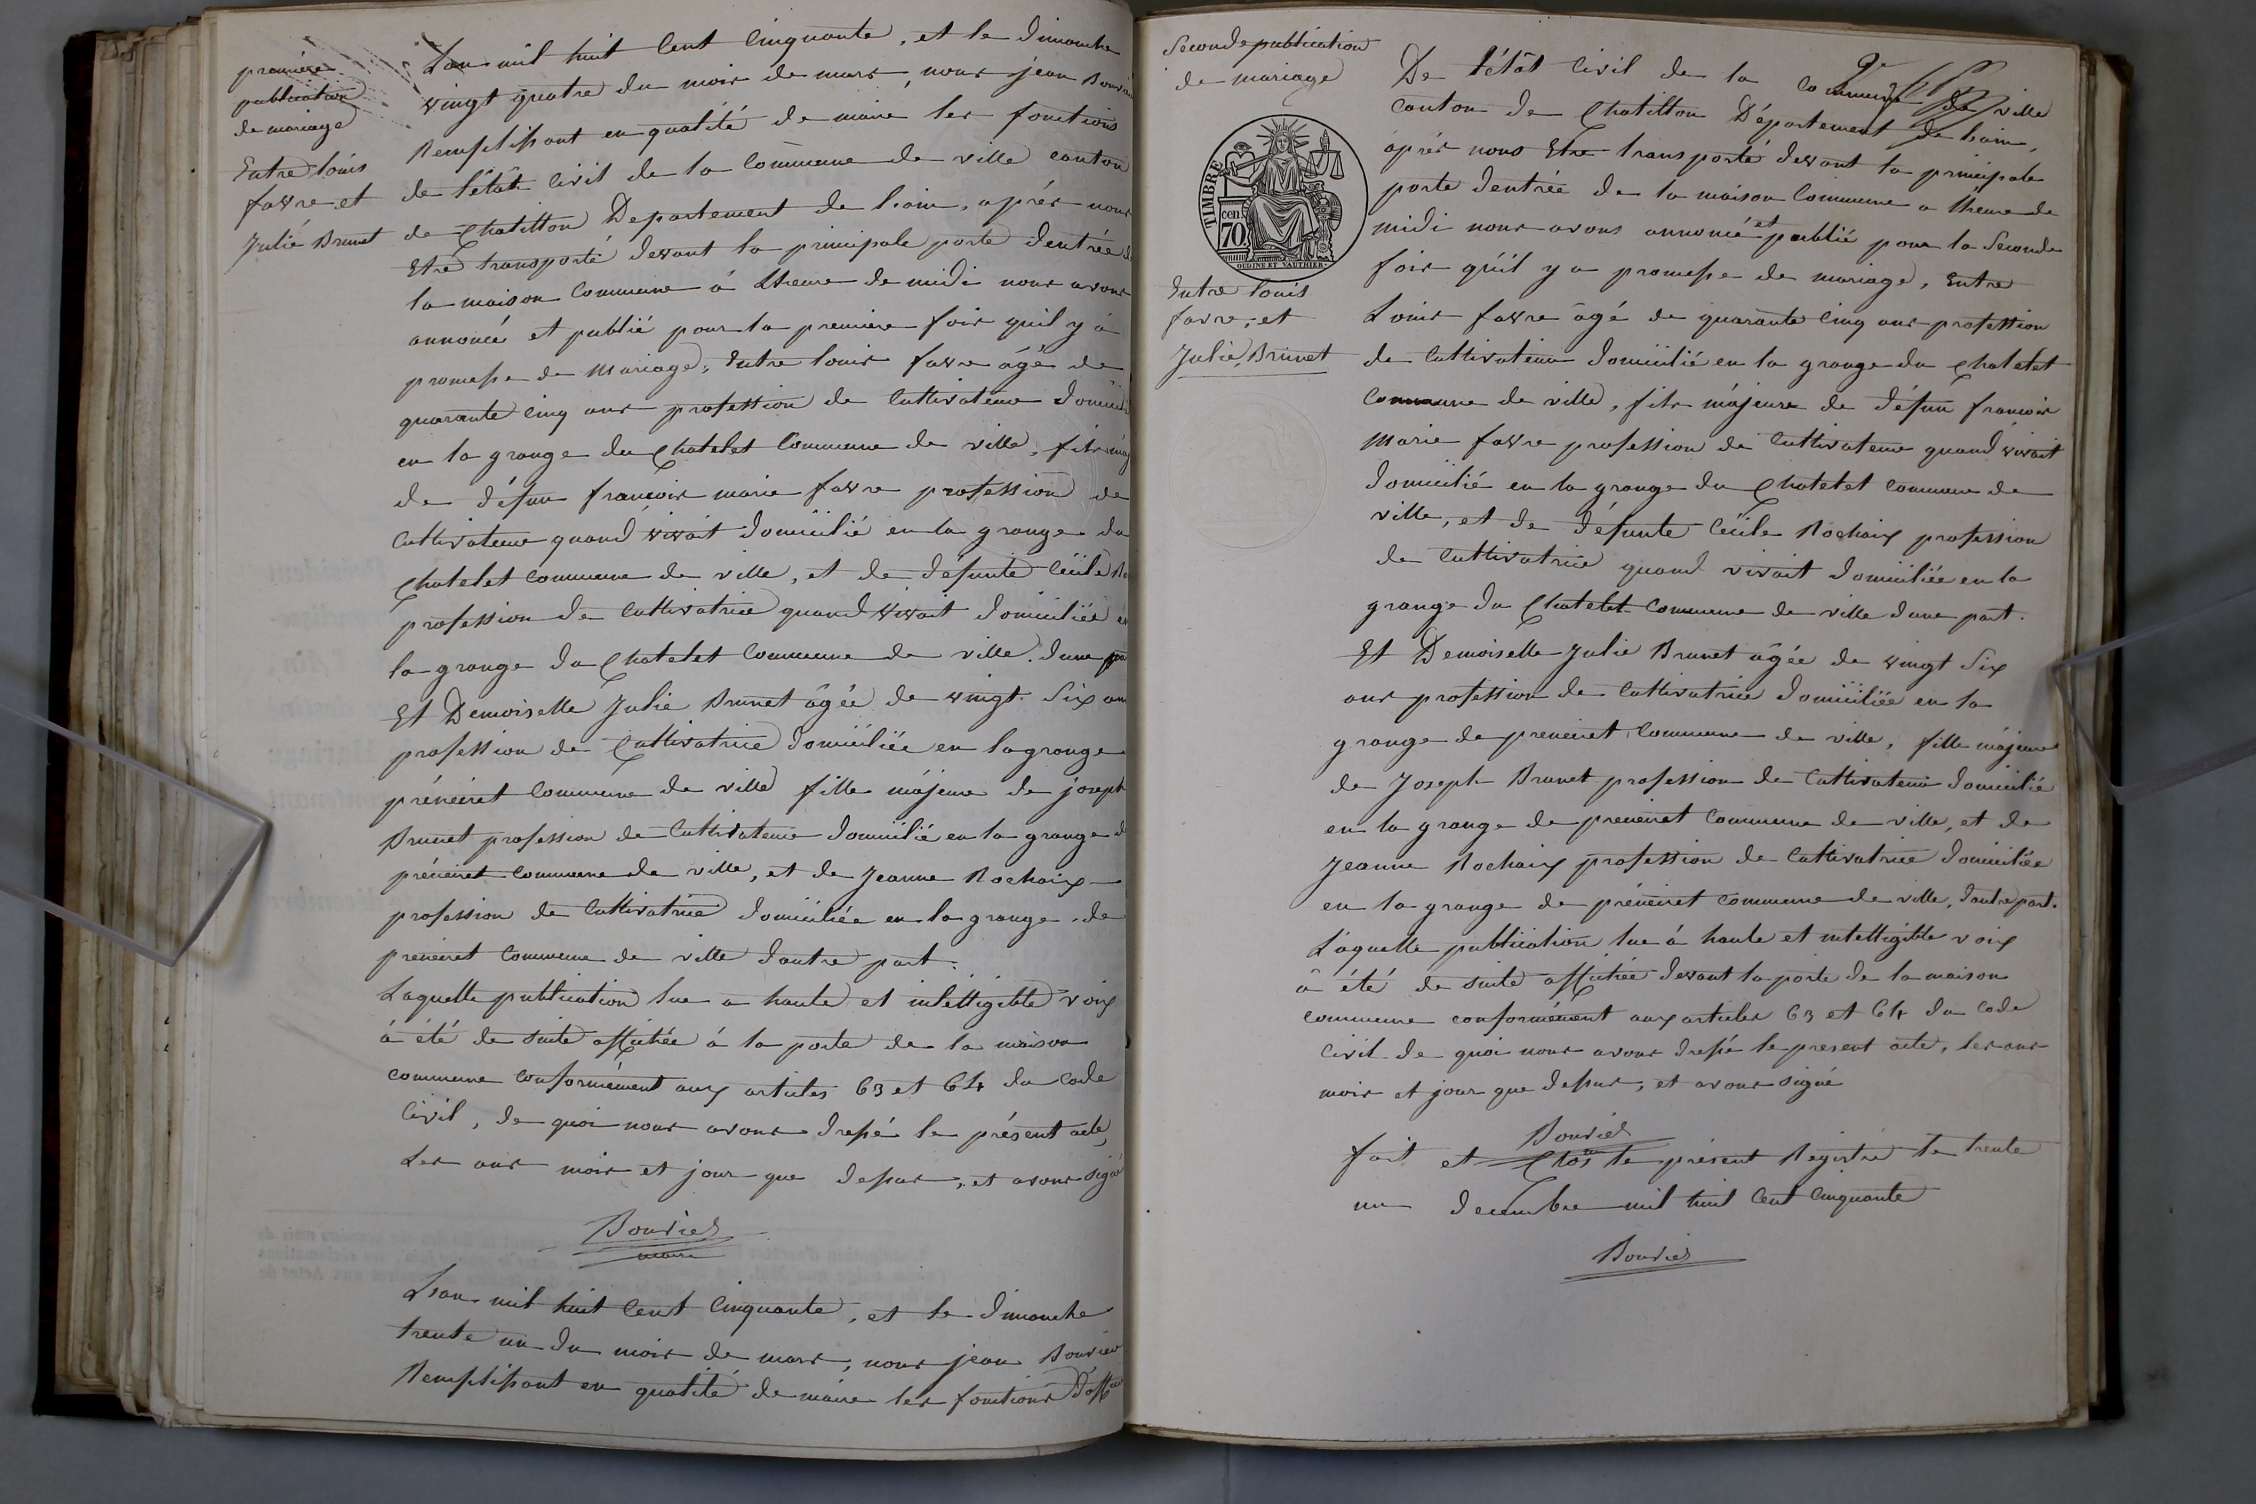 première
publication
de mariage
Entre louis
favre et
Julié Brunet
Lan mil huit Cent Cinquante, et le dimanche
vingt quatre du mois de mars, nous jean Bouvier
Remplissant en qualité de maire les fonctions
de l'étât Civil de la Commune de ville canton
de Chatillon Departement de lain, aprés nous
Etre transporté devant la principale porte dentrée
la maison Commune á Lheure de midi nous avons
annoncé et publié pour la premiere fois quil y á
promesse de Mariage, Entre louis favre âgé de
quarante Cinq ans profession de Cultivateur domicilié
en la grange du Chatelet Commune de ville, fils maj
de défun françois marie favre profession de
Cultivateur quand vivait domicilié en la grange du
Chatelet Commune de ville, et de defunte Cécile Ro
profession de Cultivatrice quand vivait domiciliée en
la grange du Chatelet Commune de ville. dune par
Et Demoiselle Julie Brunet âgée de vingt Six ans
profession de Cultivatrice domiciliée en la grange
préneiret Commune de ville fille májeure de joseph
Brunet profession de Cultivateur domicilié en la grange d
préneiret Commune de ville, et de Jeanne Rochaix
profession de Cultivatrice domiciliée en la grange de
preneiret Commune de ville dautre part.
Laquelle publication lue a haute et intelligible voix
á été de suite affichée á la porte de la maison
commune Conformément aux articles 63 et 64 du Code
Civil, de quoi nous avons dressé le présent acte,
Les ans mois et jour que dessus, et avons signé
Bouvier
maire
Lan mil huit Cent Cinquante, et le dimanche
trente un du mois de mars, nous jean Bouvier
Remplissant en qualité de maire les fonctions D'off
Seconde publication
de mariage
TIMBRE
cen.
70
OUDINE ET VAUTHIER
Entre louis
favre, et
Julie Brunet
De l'étât Civil de la Commune de ville
Canton de Chatillon Département de lain,
aprés nous Etre transporté devant la principale
porte dentrée de la maison Commune a Lheure de
midi nous avons annoncé et publié pour la Seconde
fois quil y a promesse de mariage, Entre
Louis favre âgé de quarante Cinq ans profession
de Cultivateur domicilié en la grange du Chatelet
Commune de ville, fils májeure de défun françois
Marie favre profession de Cultivateur quand vivait
domicilié en la grange du Chatelet Commune de
ville, et de défunte Cécile Rochaix profession
de Cultivatrice quand vivait domiciliée en la
grange du Chatelet Commune de ville dune part.
Et Demoiselle Julie Brunet âgée de vingt Six
ans profession de Cultivatrice domiciliée en la
grange de preneiret Commune de ville, fille májeure
de Joseph Brunet profession de Cultivateur domicilié
en la grange de preneiret Commune de ville, et de
Jeanne Rochaix profession de Cultivatrice domiciliée
en la grange de préneiret commune de ville, dautre part.
Láquelle publication lue á haute et intelligible voix
â été de suite affichée devant la porte de la maison
commune conformément aux articles 63 et 64 du Code
Civil de quoi nous avons dressé le present acte, les ans
mois et jour que dessus, et avons signé
Bouvier
fait et Clos le présent Registre le trente
un decembre mil huit Cent Cinquante
Bouvier